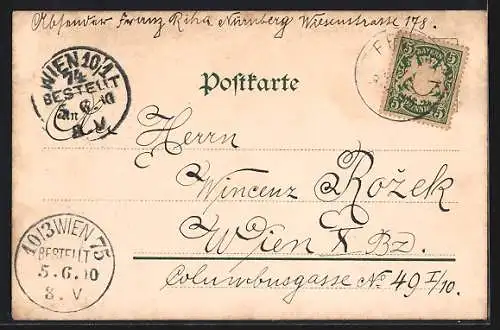 Absender Franz Riha Nürnberg Wiesenstrasse 178.
WIEN 10/1
74
BESTELLT
6
8. V.
BAYERN
5 5
5 PFENNIG 5
Postkarte
An
Herrn
Wincenz Rožek
Wien X Bz.
10/3 WIEN 75
BESTELLT
5.6.00
8. V.
Columbusgasse No 49 I/10.